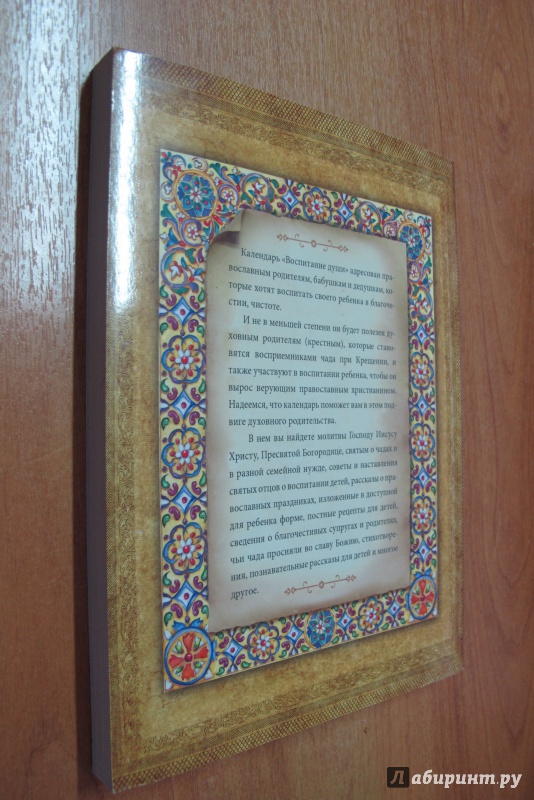 Календарь «Воспитание души» адресован пра-
вославным родителям, бабушкам и дедушкам, ко-
торые хотят воспитать своего ребенка в благоче-
стии, чистоте.
И не в меньшей степени он будет полезен ду-
ховным родителям (крестным), которые стано-
вятся восприемниками чада при Крещении, и
также участвуют в воспитании ребенка, чтобы он
вырос верующим православным христианином.
Надеемся, что календарь поможет вам в этом под-
виге духовного родительства.
В нем вы найдете молитвы Господу Иисусу
Христу, Пресвятой Богородице, святым о чадах и
в разной семейной нужде, советы и наставления
святых отцов о воспитании детей, рассказы о пра-
вославных праздниках, изложенные в доступной
для ребенка форме, постные рецепты для детей,
сведения о благочестивых супругах и родителях,
чьи чада просияли во славу Божию, стихотворе-
ния, познавательные рассказы для детей и многое
другое.
Лабиринт.ру